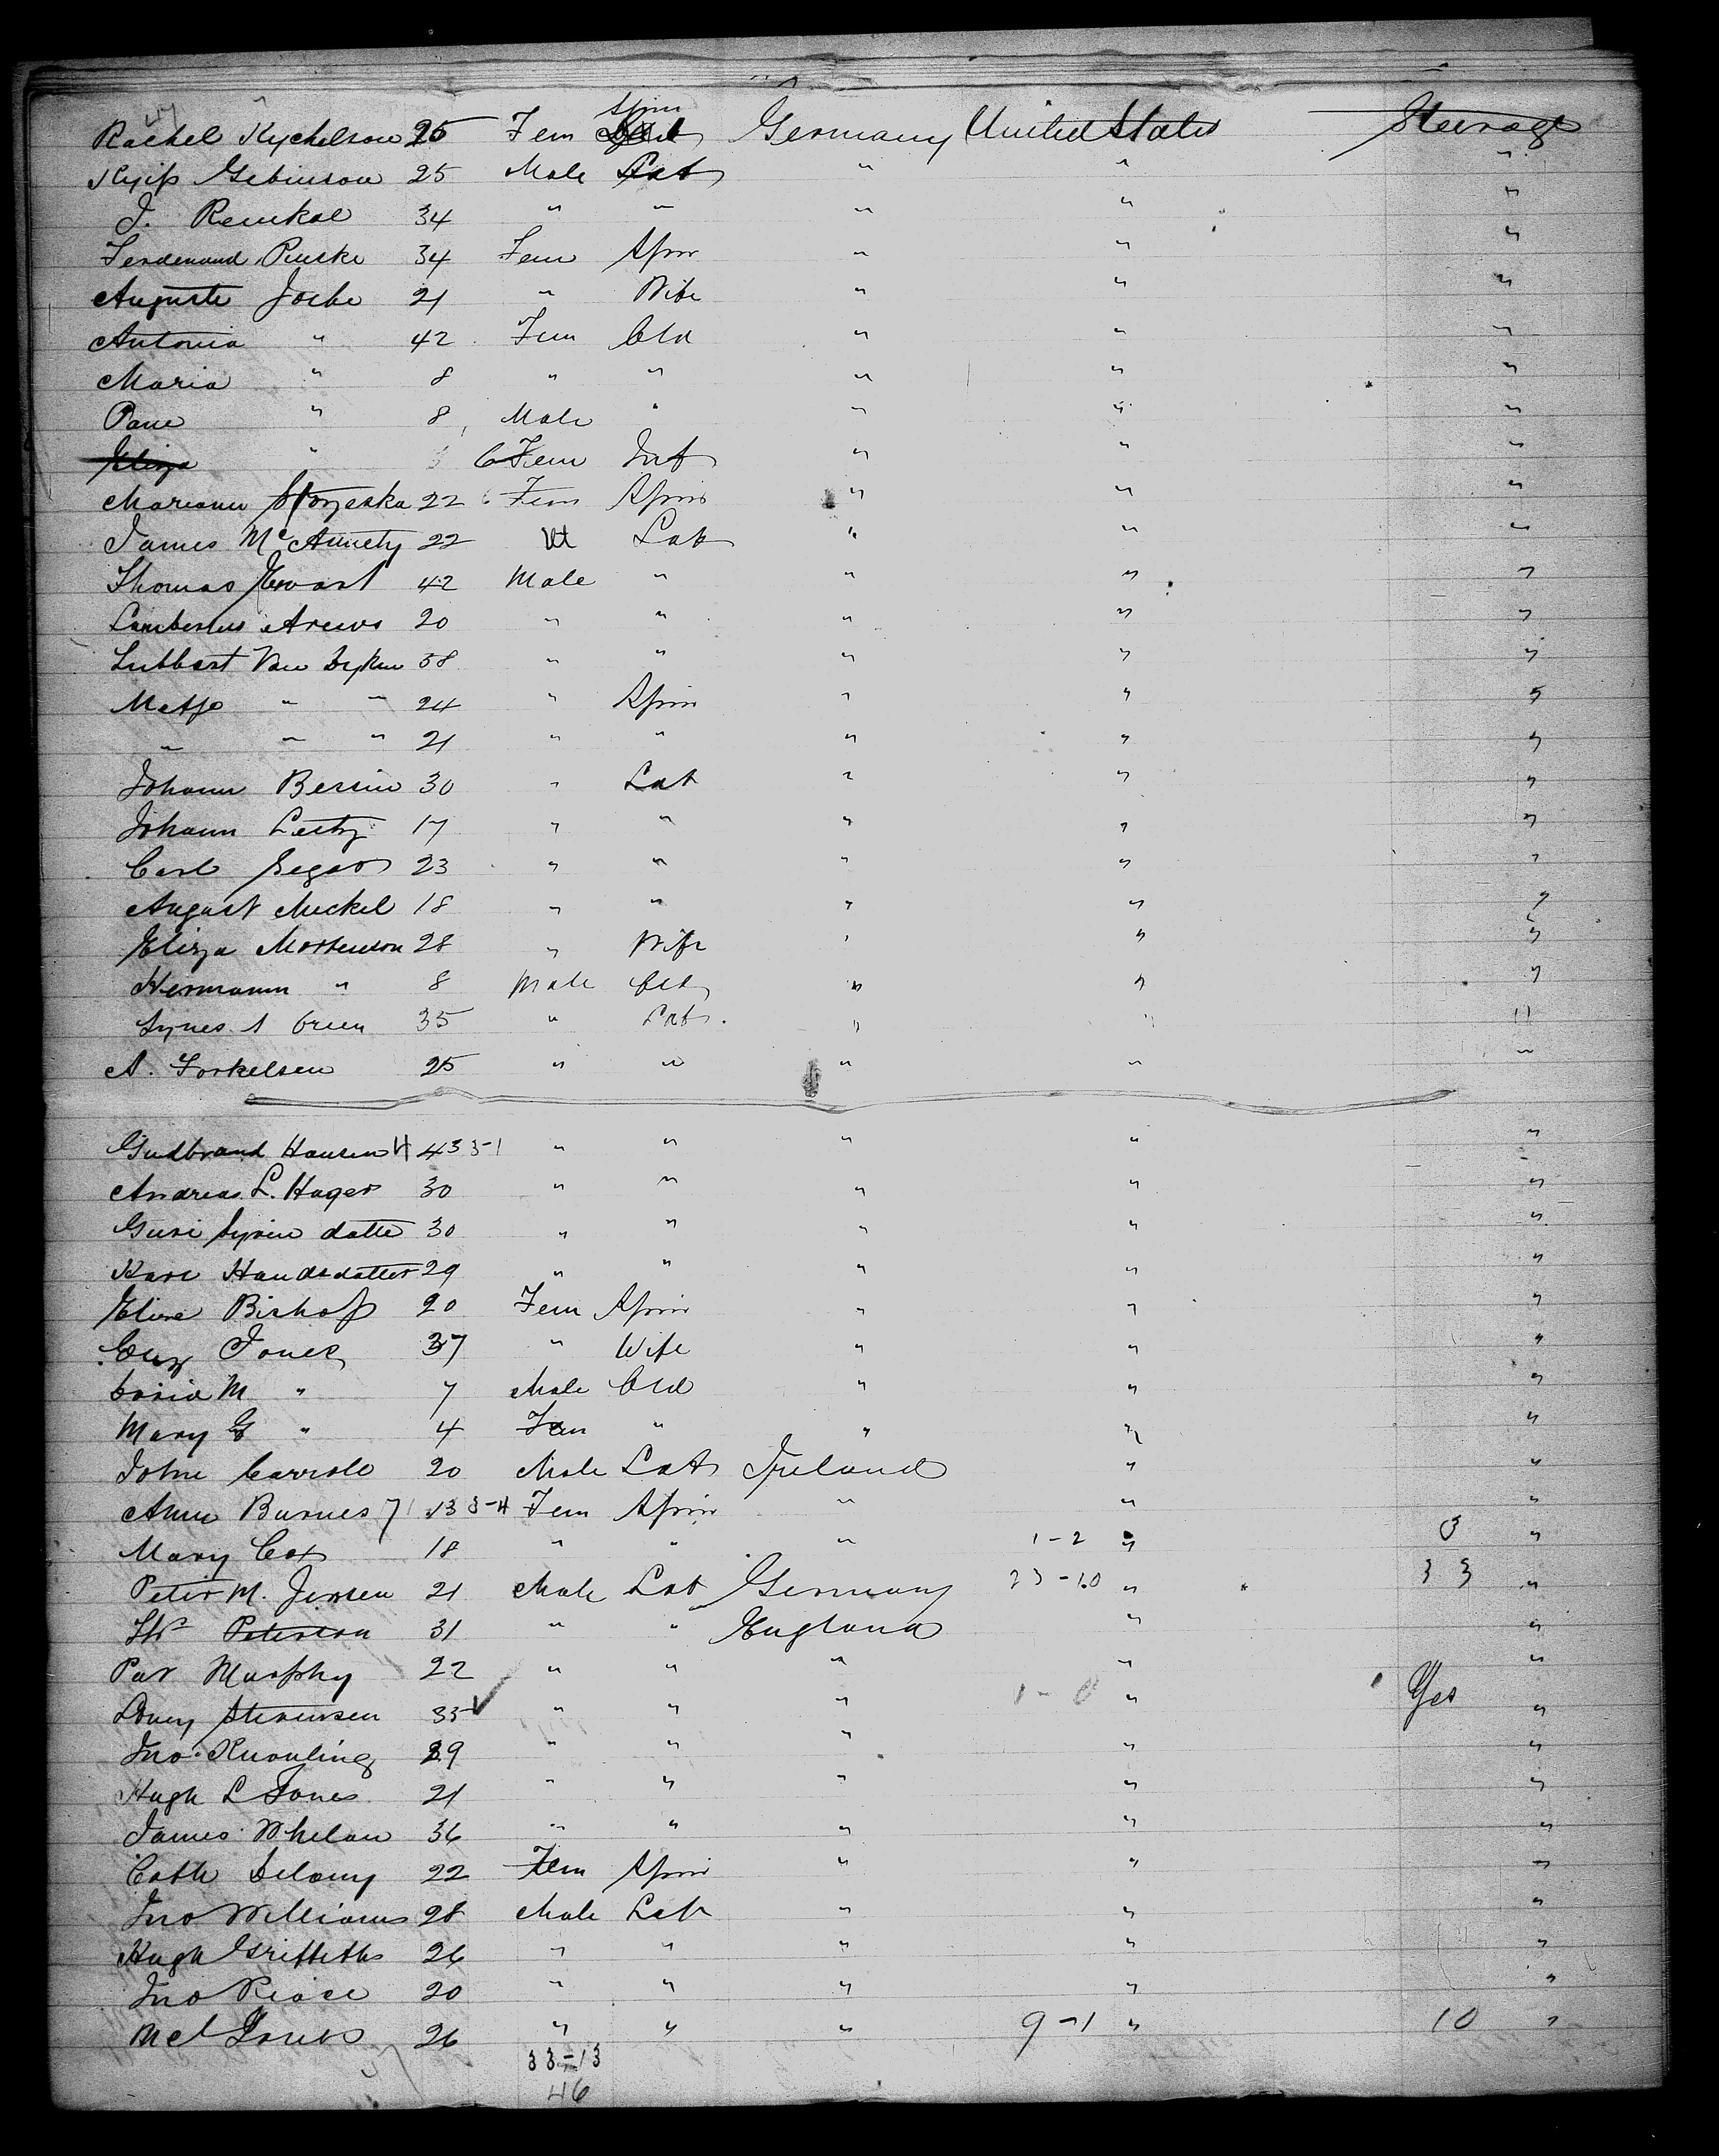 Rachel Kychelson 25 Fem Spin Germany United States Steerage
Gebinson 25 Male Lab " " "
J. Remkal 34 " " " " "
Ferdenand Pinske 34 Fem Spin " " "
Auguste Joche 21 " Wife " " "
Antonia " 42 Fem Cld " " "
Maria " 8 " " " " "
Pane " 8 Male " " " "
Eliza " 6 Fem Inf " " "
Mariann 22 Fem Spin " " "
James McAnnety 22 M Lab " " "
Thomas Ewart 42 Male " " " "
Lambertus Arews 20 " " " " "
Lubbert Van Dyken 38 " " " " "
Metje " " 24 " Spin " " "
" " " 21 " " " " "
Johann Bersin 30 " Lab " " "
Johann Leitz 17 " " " " "
Carl Segar 23 " " " " "
August Meckel 18 " " " " "
Eliza Mortenson 28 " Wife " " "
Hermann " 8 Male Cld " " "
35 " Lab. " " "
A. Torkelsen 25 " " " " "
Gudbrand Hansen H 43 3-1 " " " " "
Andreas L. Hager 30 " " " " "
Guri datter 30 " " " " "
Kari Handsdatter 29 " " " " "
Eline Bishop 20 Fem Spin " " "
Eliz Jones 37 " Wife " " "
David M " 7 Male Cld " " "
Mary E " 4 Fem " " " "
John Carroll 20 Male Lab Ireland " "
Ann Burnes 7 13 3-4 Fem Spin " " "
Mary Cox 18 " " " 1-2 " 3 "
Peter M. Jensen 21 Male Lab Germany 23-10 " 33 "
Peterson 31 " " England " "
Pat Murphy 22 " " " " "
Stevensen 35 " " " 1-0 " Yes "
Jno. Knowling 29 " " " " "
Hugh L Jones 21 " " " " "
James Whelan 36 " " " " "
Cath Delany 22 Fem Spin " " "
Jno Williams 28 Male Lab " " "
Hugh Griffiths 26 " " " " "
Jno Peace 20 " " " " "
Jones 26 " " " 9-1 " 10 "
33-13
46